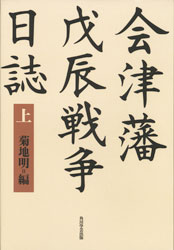 会津藩
戊辰戦争
日誌
上
菊地明=編